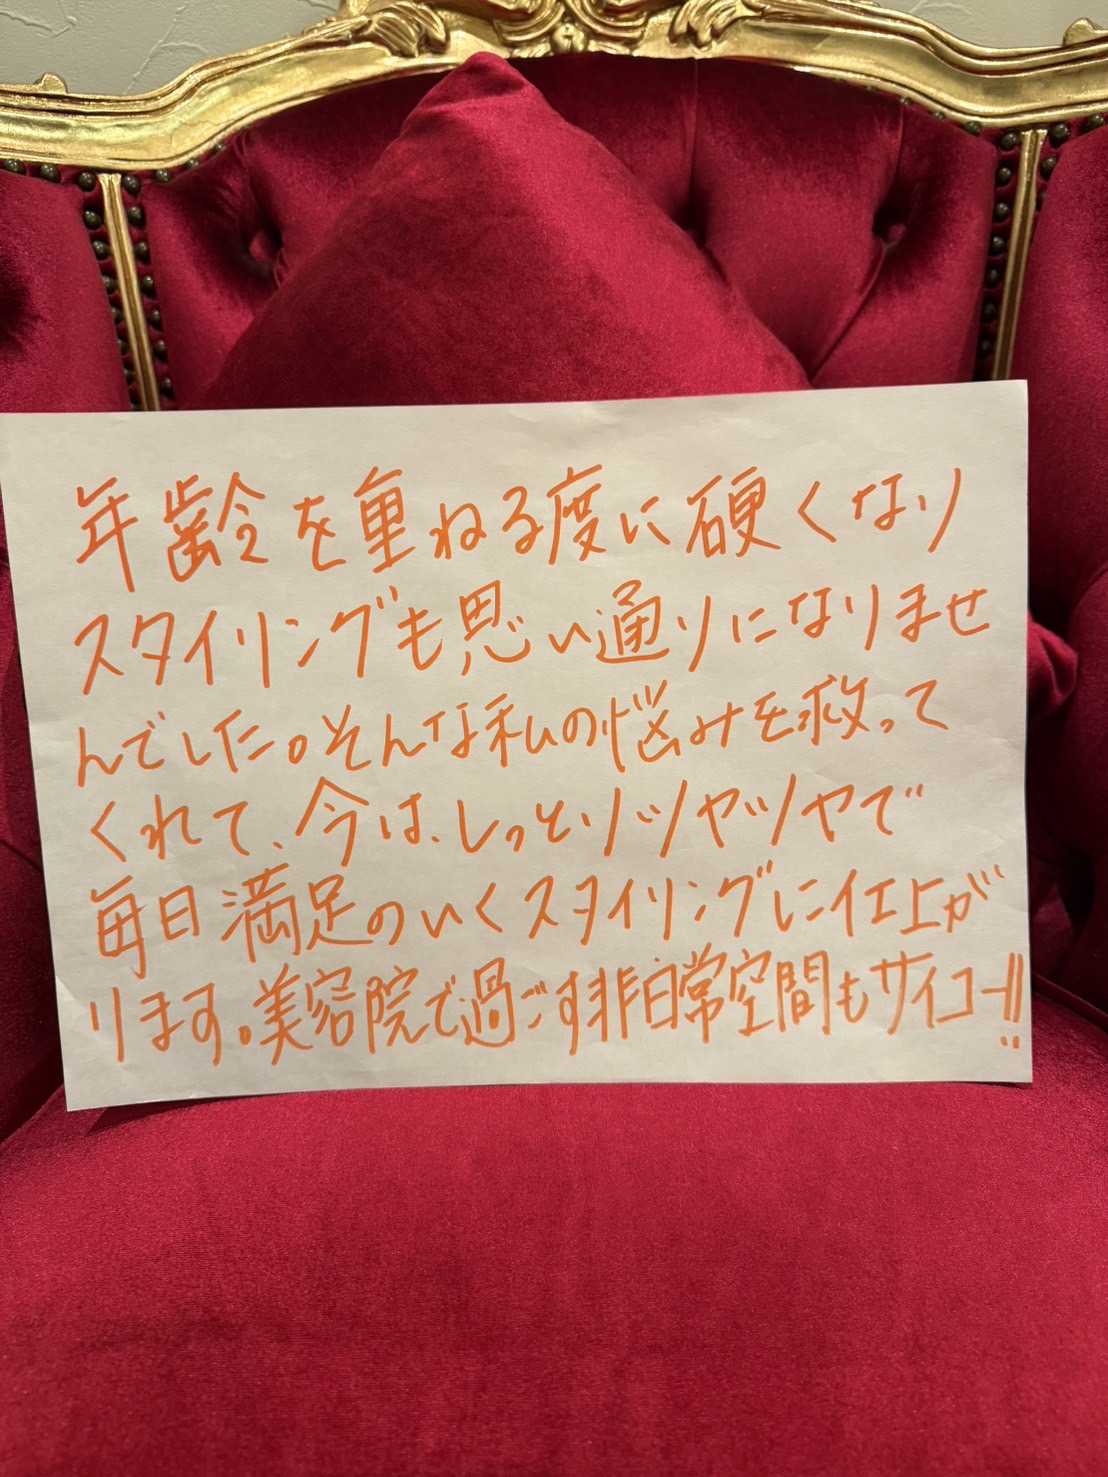 年齢を重ねる度に硬くなり
スタイリングも思い通りになりませ
んでした。そんな私の悩みを救って
くれて、今は、しっとりツヤツヤで
毎日満足のいくスタイリングに仕上が
ります。美容院で過ごす非日常空間もサイコー!!